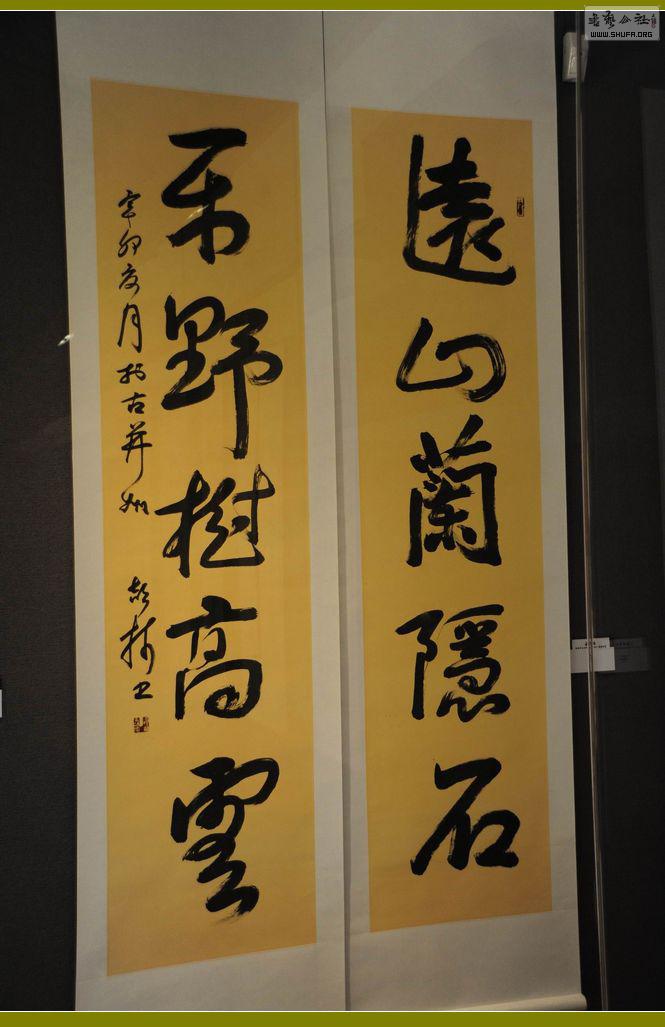 遠山蘭隱石
平野樹高雲
辛卯夏月於古并州
書法公社
WWW.SHUFA.ORG